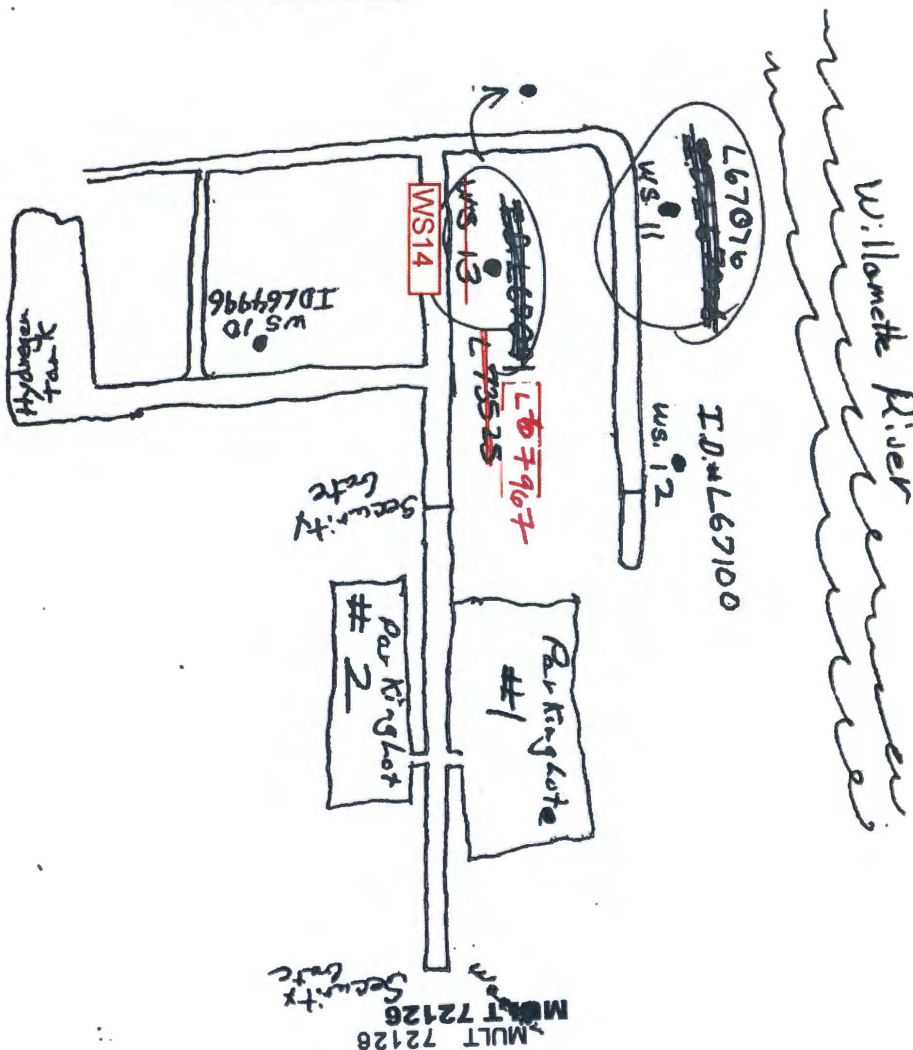 Willamette River
L67076
WS. 11
I.D.# L67100
WS. 12
WS 13
WS14
L 73525
L67967
WS 10
IDL64996
Hydrogen
tank
Security
Gate
Parking Lote
#1
Parking Lot
# 2
Security
Gate
MULT 72126
MULT 72126